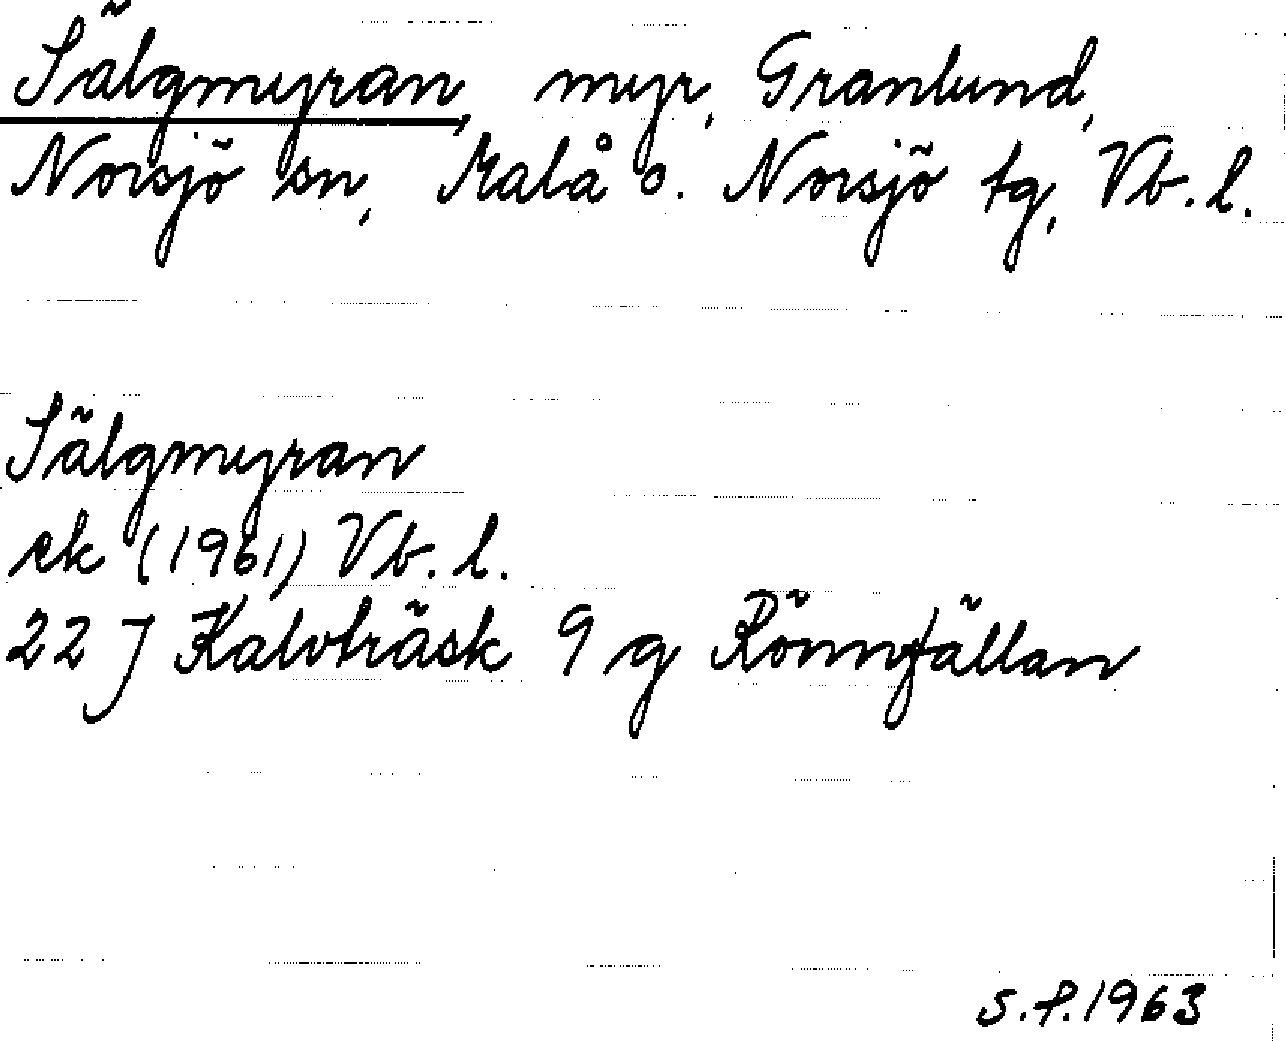 Sälgmyran, myr, Granlund,
Norsjö sn, Malå o. Norsjö tg, Vb. l.
Sälgmyran
ek (1961) Vb. l.
22 J Kalvträsk 9 g Rönnfällan
S.F. 1963